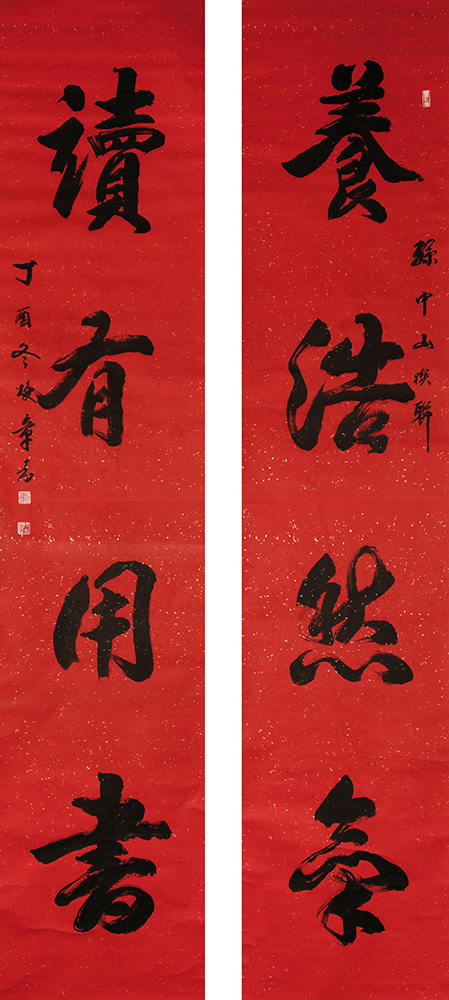 養浩然氣
孫中山撰聯
讀有用書
丁酉冬章書